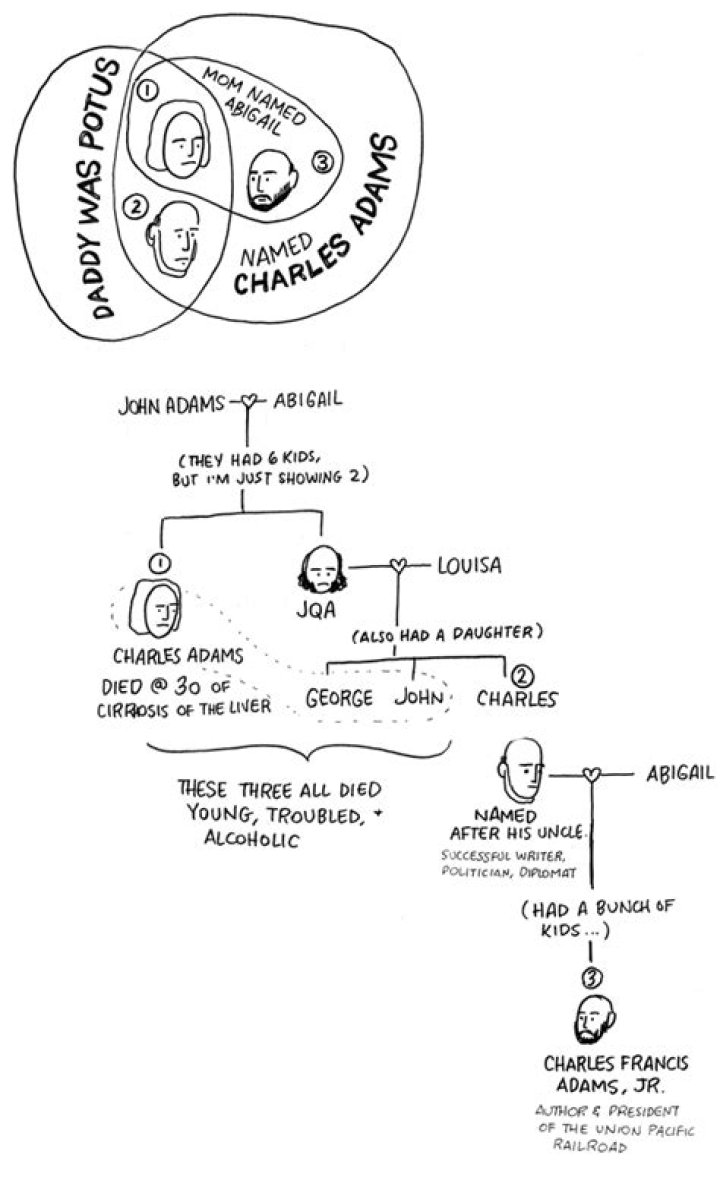 DADDY WAS POTUS
①
MOM NAMED
ABIGAIL
③
②
NAMED
CHARLES ADAMS
JOHN ADAMS ABIGAIL
(THEY HAD 6 KIDS,
BUT I'M JUST SHOWING 2)
①
LOUISA
JQA
(ALSO HAD A DAUGHTER)
CHARLES ADAMS
DIED @ 30 OF
CIRRHOSIS OF THE LIVER
②
GEORGE JOHN CHARLES
THESE THREE ALL DIED
YOUNG, TROUBLED, +
ALCOHOLIC
ABIGAIL
NAMED
AFTER HIS UNCLE.
SUCCESSFUL WRITER,
POLITICIAN, DIPLOMAT
(HAD A BUNCH OF
KIDS...)
③
CHARLES FRANCIS
ADAMS, JR.
AUTHOR & PRESIDENT
OF THE UNION PACIFIC
RAILROAD